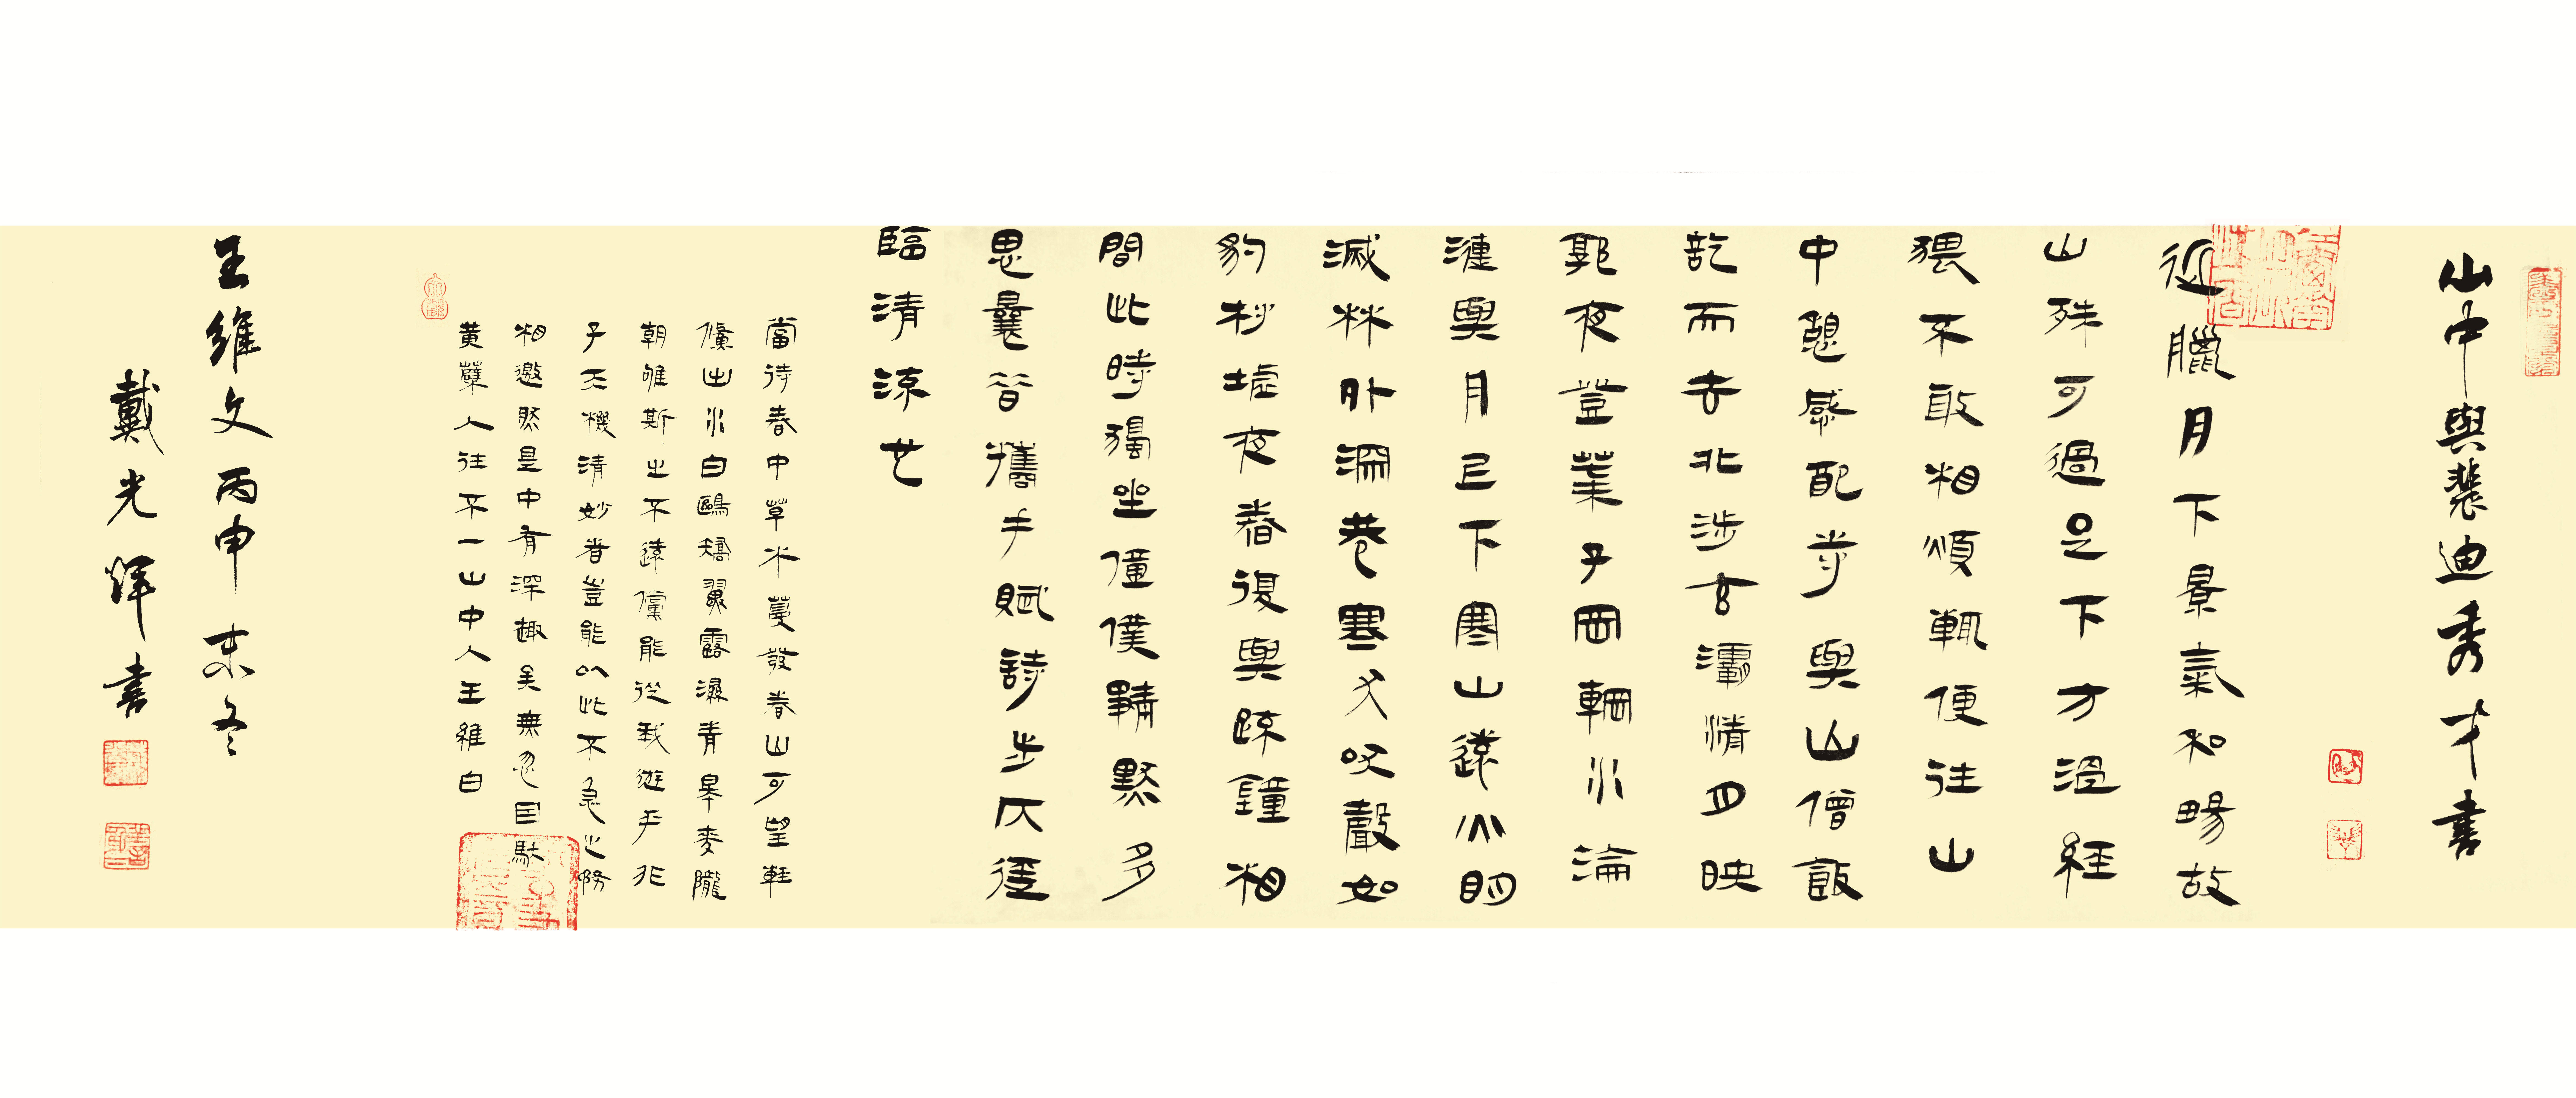 山中與裴迪秀才書
近臘月下景氣和暢故
山殊可過足下方溫經
猥不敢相煩輒便往山
中憩感配寺與山僧飯
訖而去北涉玄灞清月映
郭夜登華子岡輞水淪
漣與月已下寒山遠火明
滅林外深巷寒犬吠聲如
豹村墟夜舂復與疏鐘相
間此時獨坐僮僕靜默多
思曩昔攜手賦詩步仄徑
臨清流也
當待春中草木蔓發春山可望輕
鯈出水白鷗矯翼露濕青皋麥隴
朝雊斯之不遠儻能從我遊乎非
子天機清妙者豈能以此不急之務
相邀然是中有深趣矣無忽因馱
黃蘗人往不一山中人王維白
王維文丙申末冬
戴光輝書